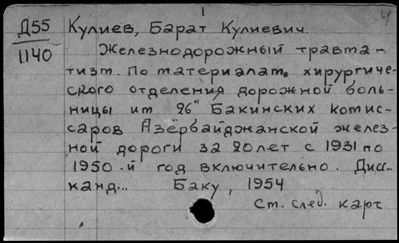 1
4
Д55 Кулиев, Барат Кулиевич.
1140 Железнодорожный травма-
тизм. По материалам хирургиче-
ского отделения дорожной боль-
ницы им 26" Бакинских комис-
саров Азербайджанской желез-
ной дороги за 20 лет с 1931 по
1950-й год включительно. Дисс.
канд... Баку, 1954
См. след. карт.